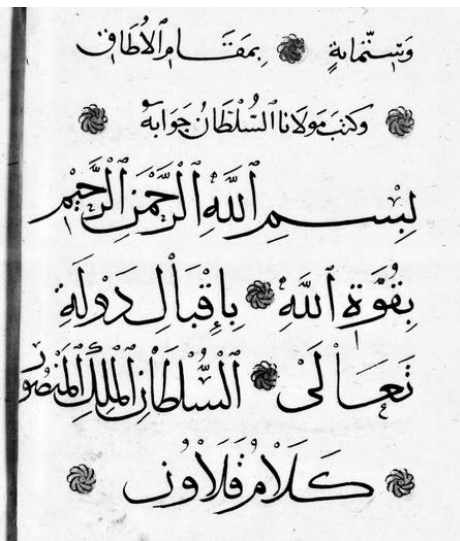 وستماية بمقام الاطاق
وكتب مولانا السلطان جوابه
بسم الله الرحمن الرحيم
بقوة الله بإقبال دولة
تعالى السلطان الملك المنصور
كلام قلاون